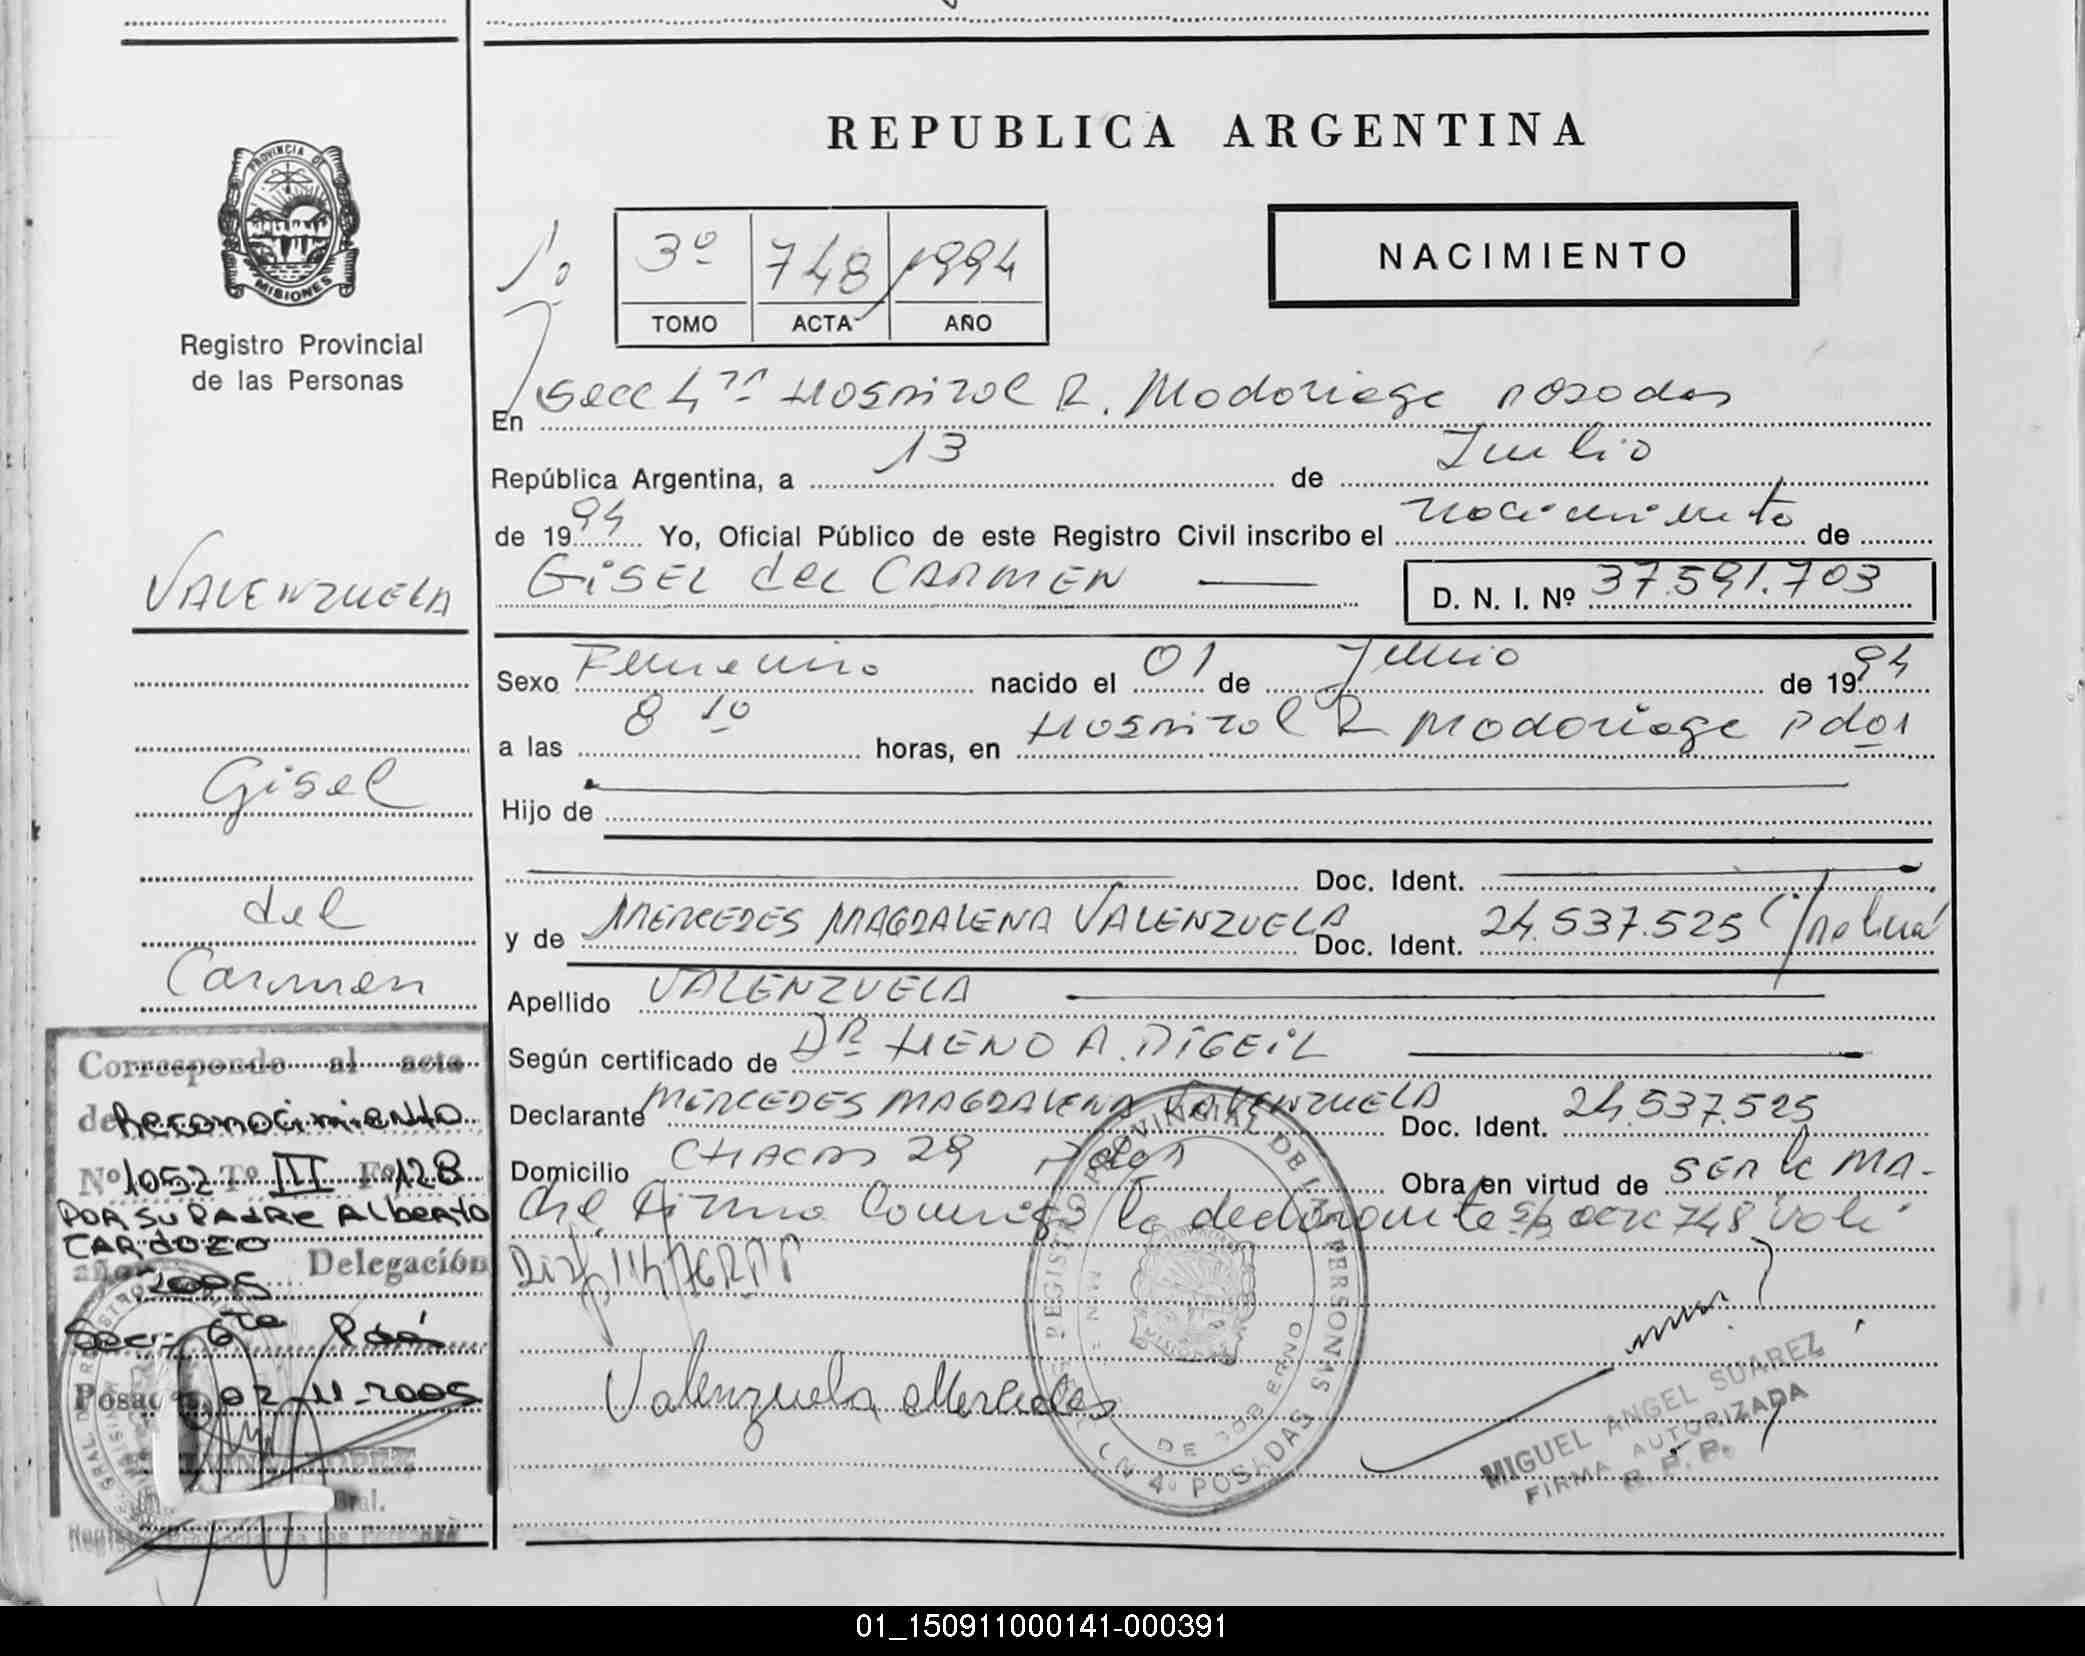 REPUBLICA ARGENTINA
PROVINCIA DE
MISIONES
Registro Provincial
de las Personas
3º 748 1994
TOMO ACTA AÑO
NACIMIENTO
En Secc 4ta Hospital R. Madariaga Posadas
República Argentina, a 13 de Julio
de 1994 Yo, Oficial Público de este Registro Civil inscribo el nacimiento de
GISEL del CARMEN D. N. I. Nº 37.591.703
VALENZUELA
Gisel
del
Carmen
Sexo Femenino nacido el 01 de Junio de 1994
a las 8 10 horas, en Hospital R Madariaga Pdas
Hijo de
Doc. Ident.
y de MERCEDES MAGDALENA VALENZUELA Doc. Ident. 24.537.525
Apellido VALENZUELA
Según certificado de Dr
Declarante MERCEDES MAGDALENA VALENZUELA Doc. Ident. 24.537.525
Domicilio CHACRA 29 Pdas Obra en virtud de SER la MA-
dre, Firma Conmigo la declarante s/r acta 748 vale
Valenzuela Mercedes
REGISTRO PROVINCIAL DE LAS PERSONAS
DE GOBERNO
POSADAS
MIGUEL ANGEL SUAREZ
FIRMA AUTORIZADA
R. P. P.
Corresponde al acta
de Reconocimiento
Nº 1052 Tº III Fº 128
POR SU PADRE Alberto
CARDOZO
año 2005 Delegación
Secc. 6ta Pdas
Posadas, 02-11-2005
01_150911000141-000391